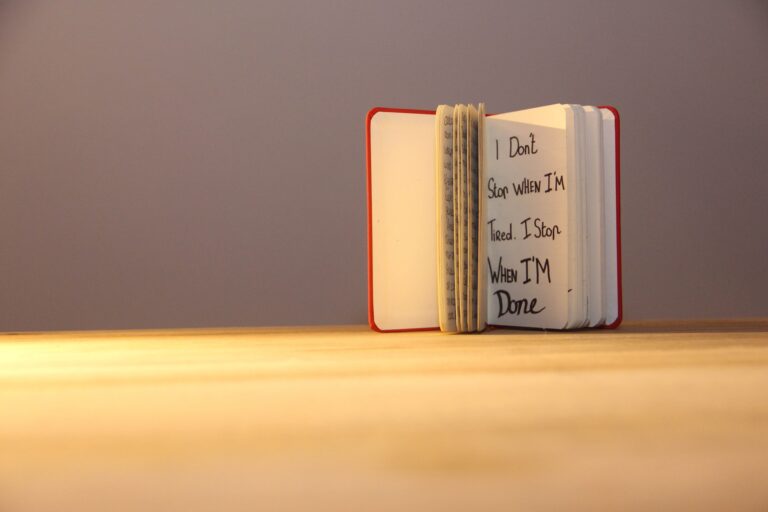 I Don't
Stop WHEN I'M
Tired. I Stop
WHEN I'M
Done